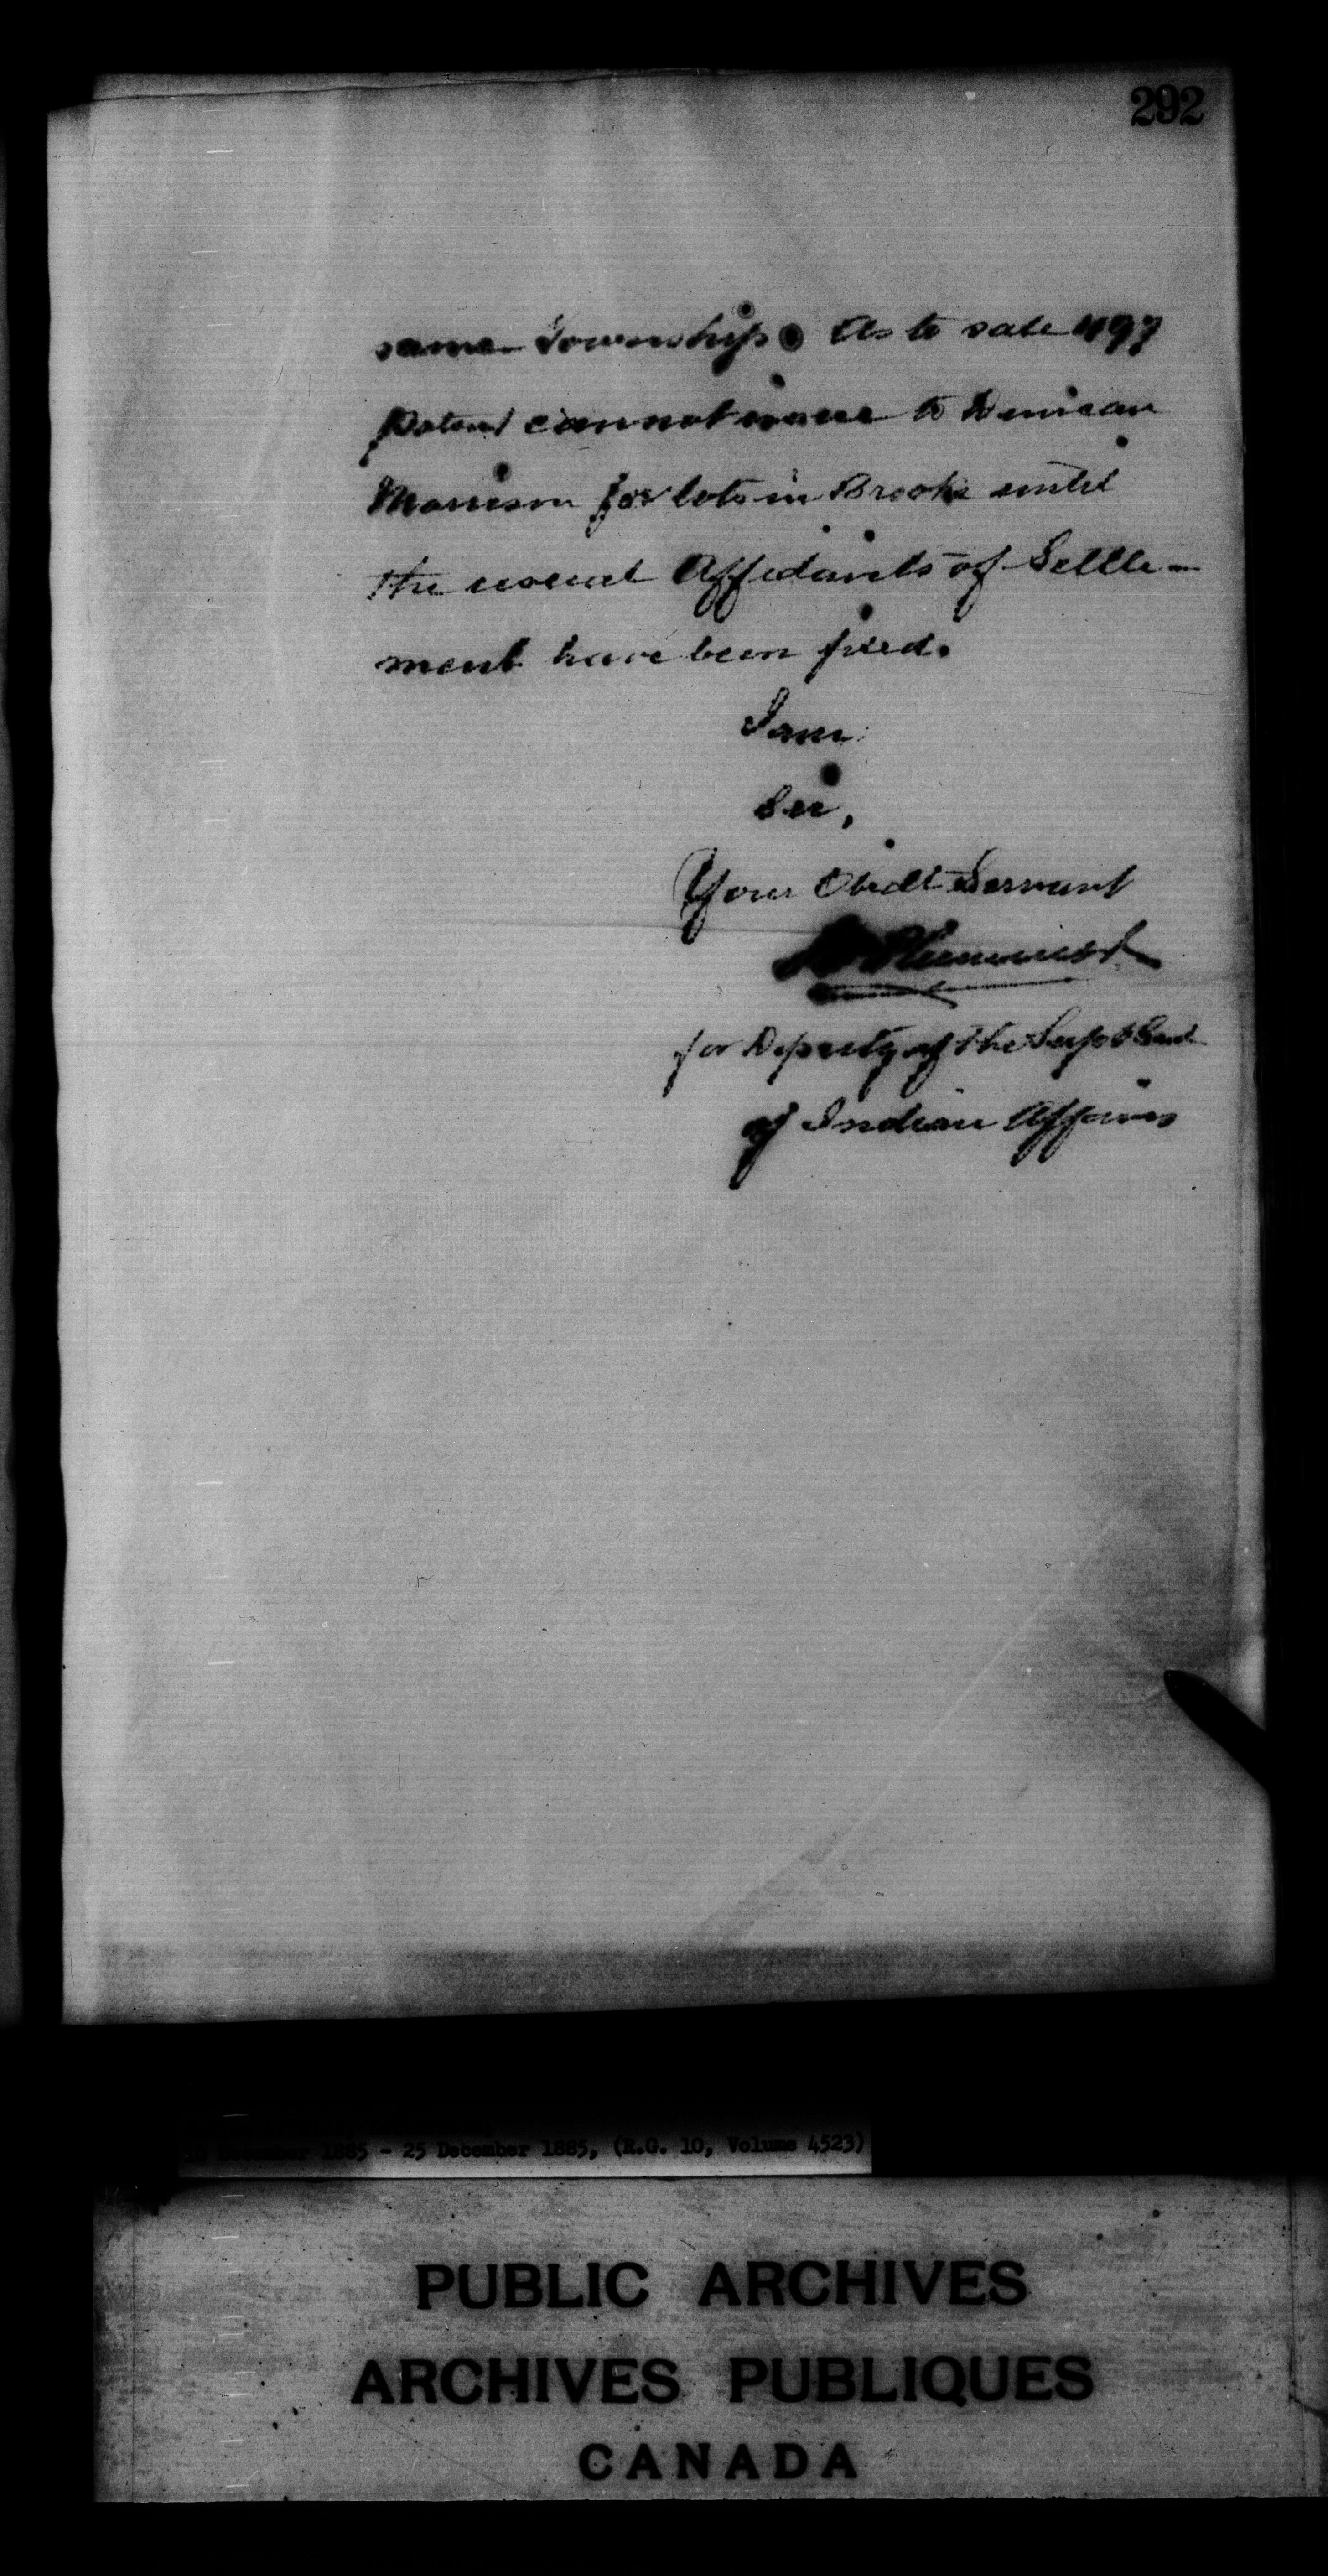 292
same Township. As to sale 497
Patent cannot issue to Duncan
Morrison for lots in Brooke until
the usual Affidavits of Settle-
ment have been filed.
I am
Sir,
Your Obedt Servant
for Deputy of the Supt Genl
of Indian Affairs
1885 - 25 December 1885, (R.G. 10, Volume 4523)
PUBLIC ARCHIVES
ARCHIVES PUBLIQUES
CANADA